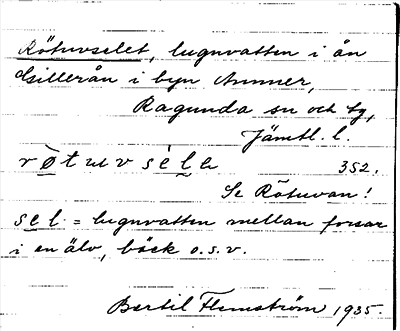 Rötuvselet, lugnvatten i ån
Gillerån i byn Ammer,
Ragunda sn och tg,
Jämtl. l.
rötuv sèle 352.
Se Rötuvan!
sel = lugnvatten mellan forsar
i en älv, bäck o.s.v.
Bertil Flemström 1935.